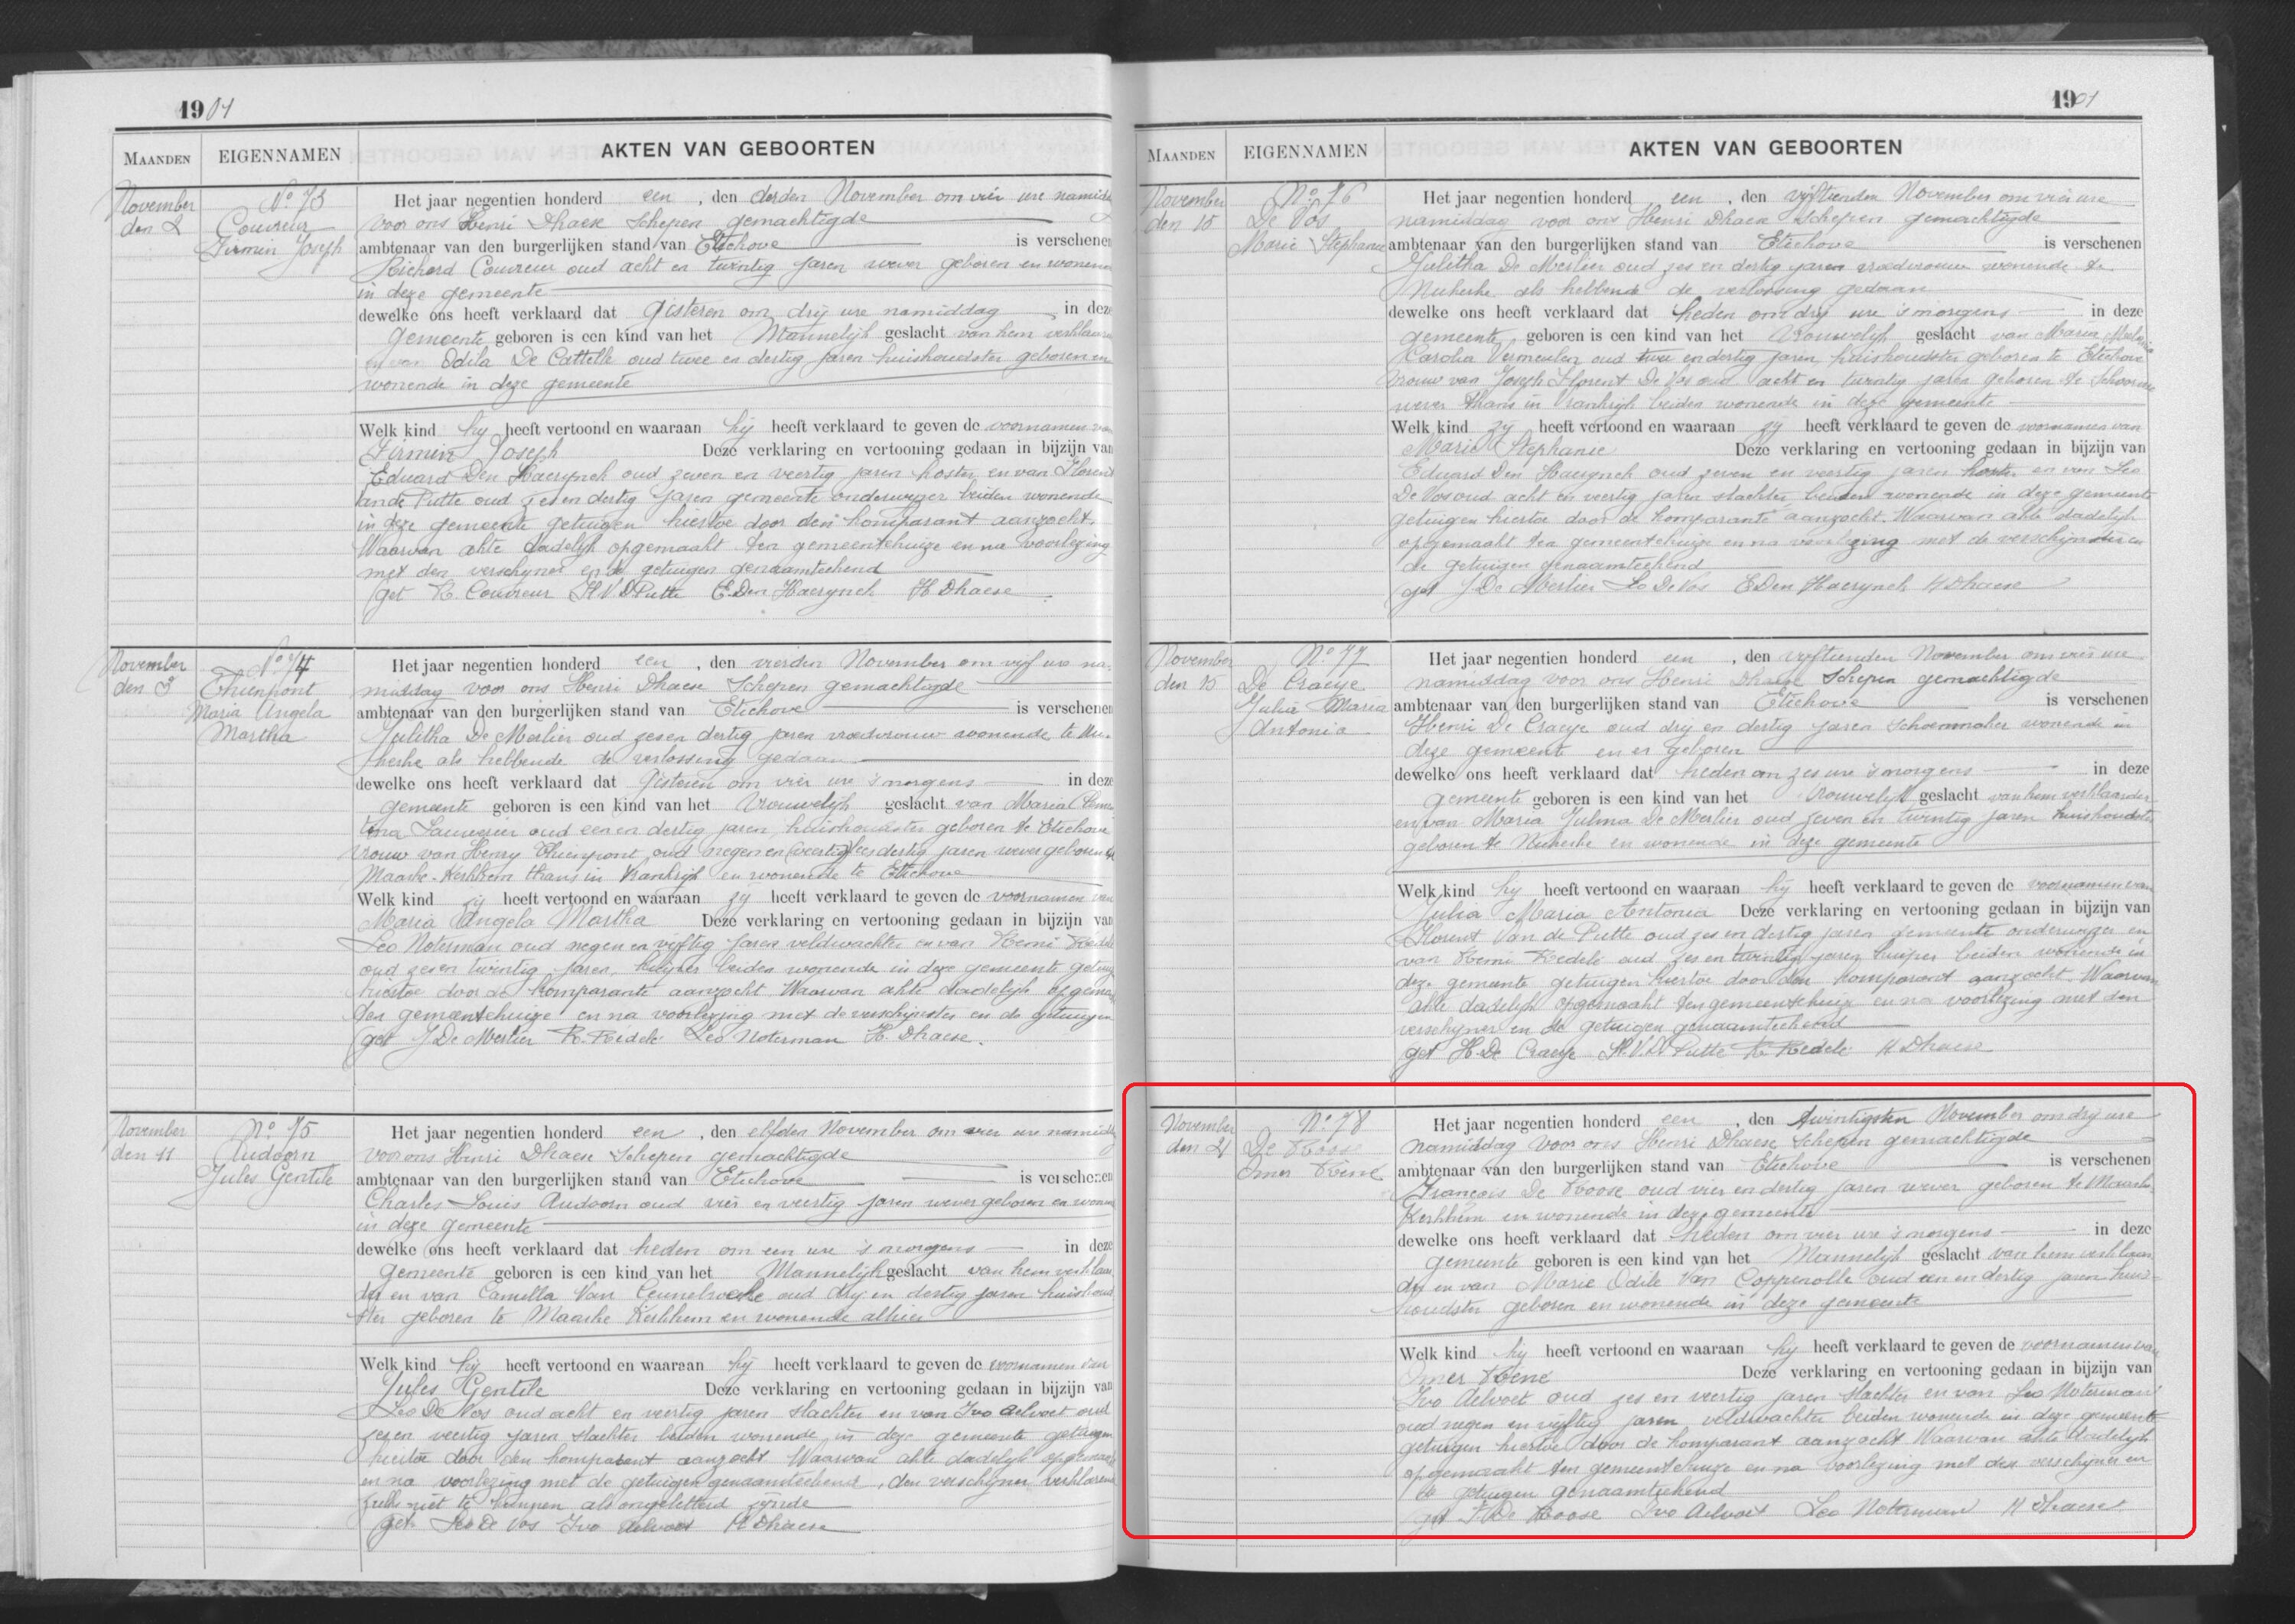 1901
MAANDEN EIGENNAMEN AKTEN VAN GEBOORTEN
November den 2
No 73
Couvreur
Firmin Joseph
Het jaar negentien honderd een, den derden November om vier ure namidd
voor ons Henri Dhaese Schepen gemachtigde
ambtenaar van den burgerlijken stand van Etichove is verschenen
Richard Couvreur oud acht en twintig jaren wever geboren en wonen
in deze gemeente
dewelke ons heeft verklaard dat gisteren om drij ure namiddag, in deze
gemeente geboren is een kind van het Mannelijk geslacht van hem verklaar
en van Odila De Cattelle oud twee en dertig jaren huishoudster geboren en
wonende in deze gemeente
Welk kind hij heeft vertoond en waaraan hij heeft verklaard te geven de voornamen van
Firmin Joseph Deze verklaring en vertooning gedaan in bijzijn van
Eduard Den Haerynck oud zeven en veertig jaren koster en van Florent
Vande Putte oud zes en dertig jaren gemeente onderwijzer beiden wonende
in deze gemeente getuigen hiertoe door den komparant aanzocht.
Waarvan akte dadelijk opgemaakt ten gemeentehuize en na voorlezing
met den verschijner en de getuigen genaamteekend
get R. Couvreur Fl V D Putte E. Den Haerynck H Dhaese
November den 3
No 74
Thienpont
Maria Angela
Martha
Het jaar negentien honderd een, den vierden November om vijf ure na-
middag voor ons Henri Dhaese Schepen gemachtigde
ambtenaar van den burgerlijken stand van Etichove is verschenen
Julitha De Merlier oud zes en dertig jaren vroedvrouw wonende te Nu-
kerke als hebbende de verlossing gedaan
dewelke ons heeft verklaard dat gisteren om vier ure 's morgens in deze
gemeente geboren is een kind van het Vrouwelijk geslacht van Maria
oud een en dertig jaren huishoudster geboren te Etichove
vrouw van Henry Thienpont oud negen en (veertig) dertig jaren wever geboren te
Maarke-Kerkhem thans in Frankrijk en wonende te Etichove
Welk kind zij heeft vertoond en waaraan zij heeft verklaard te geven de voornamen van
Maria Angela Martha Deze verklaring en vertooning gedaan in bijzijn van
Leo Noterman oud negen en vijftig jaren veldwachter en van Remi Redele
oud zes en twintig jaren, kuiper beiden wonende in deze gemeente getuig
hiertoe door de komparante aanzocht. Waarvan akte dadelijk opgema
ten gemeentehuize en na voorlezing met de verschijnster en de getuigen
get J De Merlier R. Redele Leo Noterman H. Dhaese.
November den 11
No 75
Audoorn
Jules Gentile
Het jaar negentien honderd een, den elfden November om vier ure namidd
voor ons Henri Dhaese Schepen gemachtigde
ambtenaar van den burgerlijken stand van Etichove is verschenen
Charles Louis Audoorn oud vier en veertig jaren wever geboren en wonen
in deze gemeente
dewelke ons heeft verklaard dat heden om een ure 's morgens in deze
gemeente geboren is een kind van het Mannelijk geslacht van hem verklaar
der en van Camilla Van oud drij en dertig jaren huishoud
ster geboren te Maarke Kerkhem en wonende alhier
Welk kind hij heeft vertoond en waaraan hij heeft verklaard te geven de voornamen van
Jules Gentile Deze verklaring en vertooning gedaan in bijzijn van
Leo De Vos oud acht en veertig jaren slachter en van Ivo Aelvoet oud
zes en veertig jaren slachter beiden wonende in deze gemeente getuigen
hiertoe door den komparant aanzocht Waarvan akte dadelijk opgemaakt
en na voorlezing met de getuigen genaamteekend, den verschijner verklarend
zulks niet te kunnen als ongeletterd zijnde
get. Leo De Vos Ivo Aelvoet H Dhaese
1901
MAANDEN EIGENNAMEN AKTEN VAN GEBOORTEN
November den 15
No 76
De Vos
Marie Stephanie
Het jaar negentien honderd een, den vijftienden November om vier ure
namiddag voor ons Henri Dhaese Schepen gemachtigde
ambtenaar van den burgerlijken stand van Etichove is verschenen
Julitha De Merlier oud zes en dertig jaren vroedvrouw wonende te
Nukerke als hebbende de verlossing gedaan
dewelke ons heeft verklaard dat heden om drij ure 's morgens in deze
gemeente geboren is een kind van het Vrouwelijk geslacht van Maria
Karolia Vermeulen oud twee en dertig jaren, huishoudster geboren te Etichove
vrouw van Joseph Florent De Vos oud acht en twintig jaren geboren te Schoorisse
wever thans in Frankrijk beiden wonende in deze gemeente
Welk kind zij heeft vertoond en waaraan zij heeft verklaard te geven de voornamen van
Marie Stephanie Deze verklaring en vertooning gedaan in bijzijn van
Eduard Den Haerynck oud zeven en veertig jaren koster en van Leo
De Vos oud acht en veertig jaren slachter beiden wonende in deze gemeente
getuigen hiertoe door de komparante aanzocht. Waarvan akte dadelijk
opgemaakt ten gemeentehuize en na voorlezing met de verschijnster en
de getuigen genaamteekend
get J De Merlier Leo De Vos E Den Haerynck H Dhaese
November den 15
No 77
De Craeye
Julia Maria
Antonia
Het jaar negentien honderd een, den vijftienden November om vier ure
namiddag voor ons Henri Dhaese Schepen gemachtigde
ambtenaar van den burgerlijken stand van Etichove is verschenen
Henri De Craeye oud drij en dertig jaren Schoenmaker wonende in
deze gemeente en er geboren
dewelke ons heeft verklaard dat heden om zes ure 's morgens in deze
gemeente geboren is een kind van het Vrouwelijk geslacht van hem verklaarder
en van Maria Julma De Merlier oud zeven en twintig jaren huishoudster
geboren te Nukerke en wonende in deze gemeente
Welk kind hij heeft vertoond en waaraan hij heeft verklaard te geven de voornamen van
Julia Maria Antonia Deze verklaring en vertooning gedaan in bijzijn van
Florent Van de Putte oud zes en dertig jaren gemeente onderwijzer en
van Remi Redele oud zes en twintig jaren kuiper beiden wonende in
deze gemeente getuigen hiertoe door den komparant aanzocht. Waarvan
akte dadelijk opgemaakt ten gemeentehuize en na voorlezing met den
verschijner en de getuigen genaamteekend
get H. De Craeye Fl. V. D Putte R Redele H Dhaese
November den 21
No 78
De Roose
Omer René
Het jaar negentien honderd een, den twintigsten November om drij ure
namiddag voor ons Henri Dhaese Schepen gemachtigde
ambtenaar van den burgerlijken stand van Etichove is verschenen
François De Roose oud vier en dertig jaren wever geboren te Maarke-
Kerkhem en wonende in deze gemeente
dewelke ons heeft verklaard dat heden om vier ure 's morgens in deze
gemeente geboren is een kind van het Mannelijk geslacht van hem verklaar
der en van Marie Odile Van Coppenolle oud een en dertig jaren huis-
houdster geboren en wonende in deze gemeente
Welk kind hij heeft vertoond en waaraan hij heeft verklaard te geven de voornamen van
Omer René Deze verklaring en vertooning gedaan in bijzijn van
Ivo Aelvoet oud zes en veertig jaren slachter en van Leo Noterman
oud negen en vijftig jaren veldwachter beiden wonende in deze gemeente
getuigen hiertoe door de komparant aanzocht Waarvan akte dadelijk
opgemaakt ten gemeentehuize en na voorlezing met den verschijner en
de getuigen genaamteekend
get F. De Roose Ivo Aelvoet Leo Noterman H Dhaese